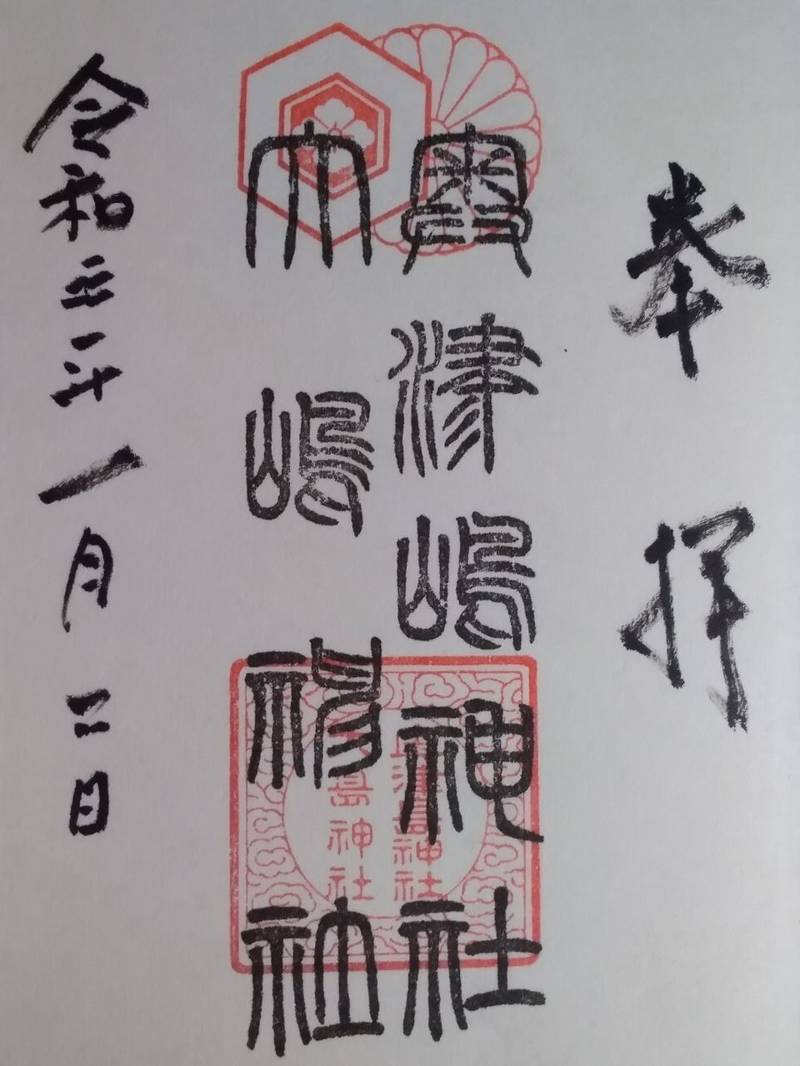 奉拝
奥津嶋神社
大嶋神社
令和三年一月二日
津島神社
島神社